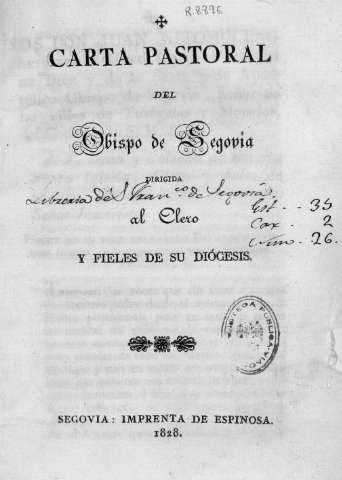 R.8896
CARTA PASTORAL
DEL
Obispo de Segovia
DIRIGIDA
Libreria de S Fran.co de Segovia
al Clero
Est. . . 35
Cax . . 2
Num . . 26.
Y FIELES DE SU DIÓCESIS.
SEGOVIA: IMPRENTA DE ESPINOSA.
1828.